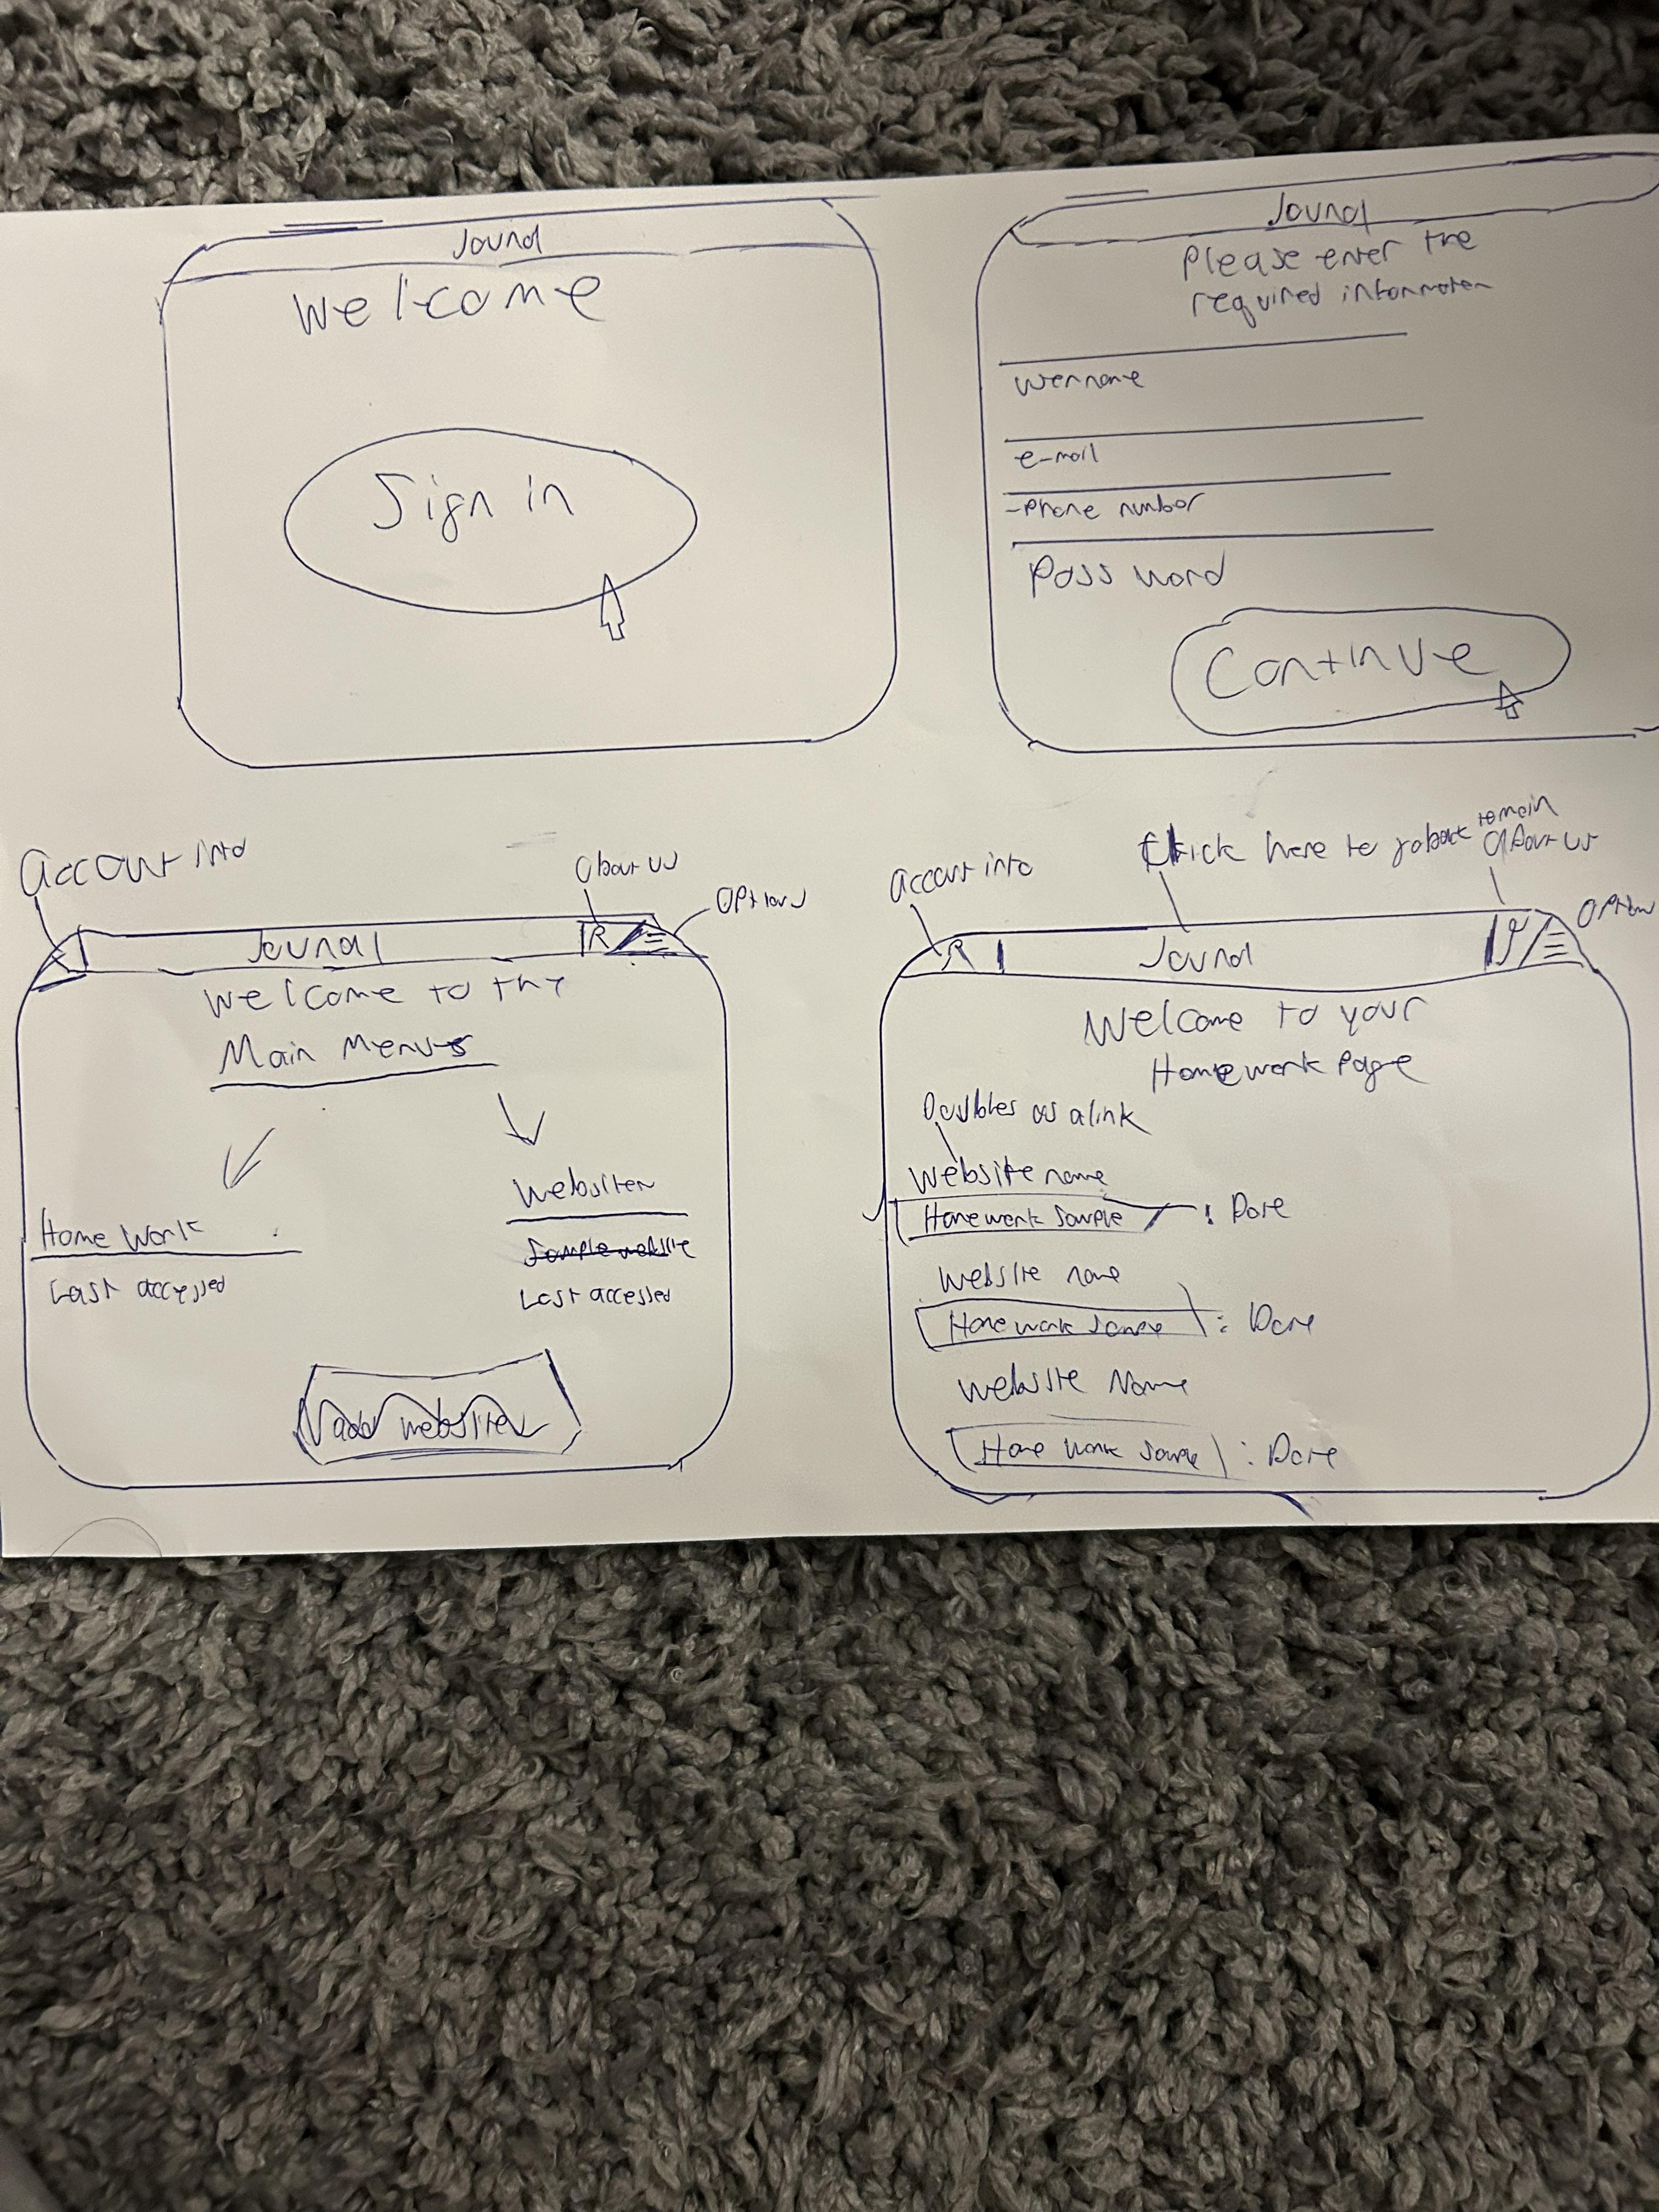 Journal
Welcome
Sign in
Journal
Please enter the
required information
username
e-mail
-Phone number
Pass word
Continue
Account info
About us
Options
Journal
Welcome to the
Main Menus
Home Work
Last accessed
Websites
Sample website
Last accessed
add websites
account info
Click here to go back to main
About us
Option
Journal
Welcome to your
Homework Page
Doubles as a link
Website name
Homework Sample : Date
Website name
Home work Sample : Date
Website Name
Home work Sample : Date